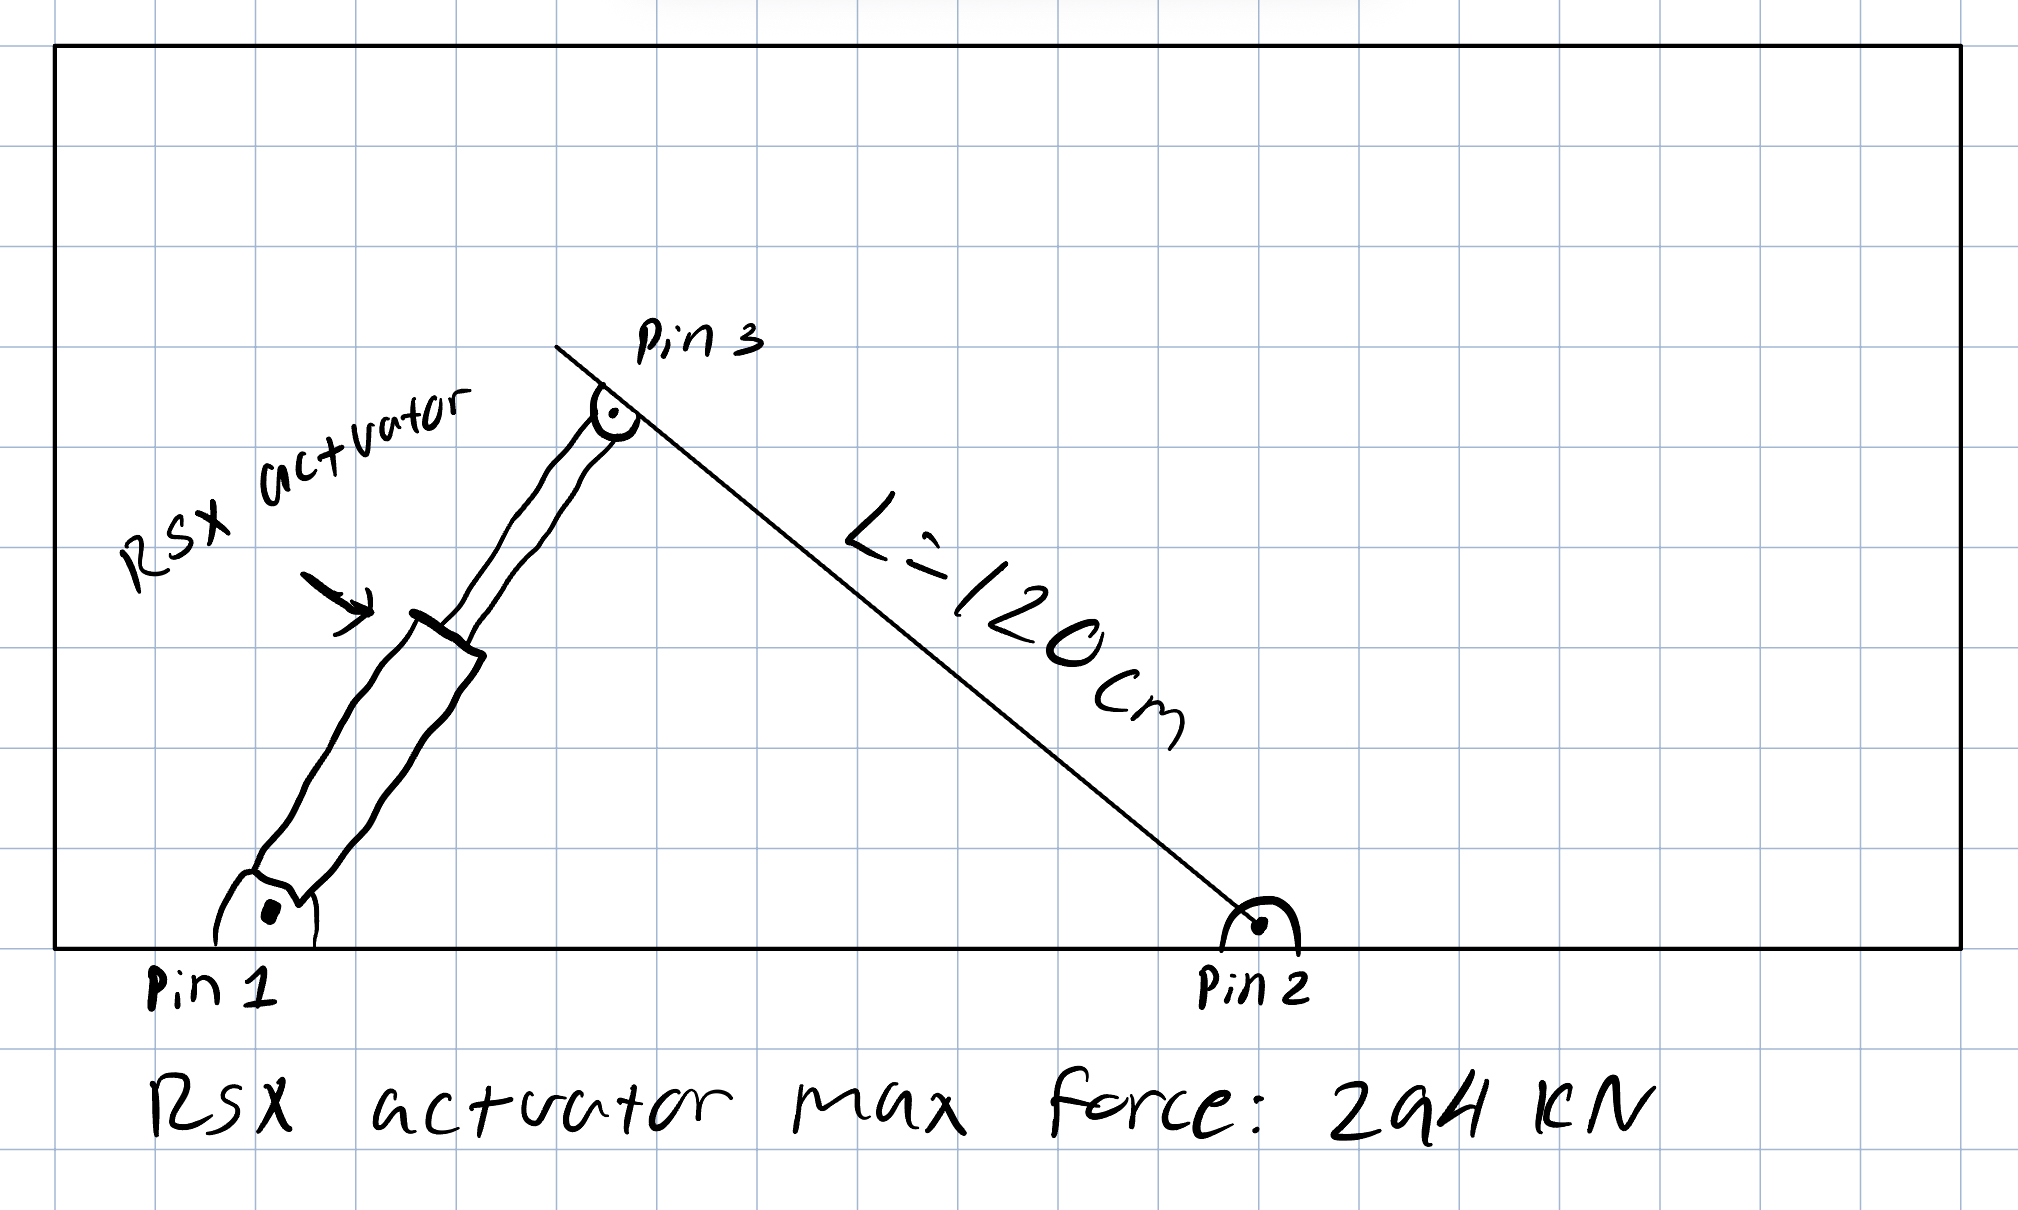 Pin 3
RSX actuator
L=120cm
Pin 1
Pin 2
RSX actuator max force: 294 KN